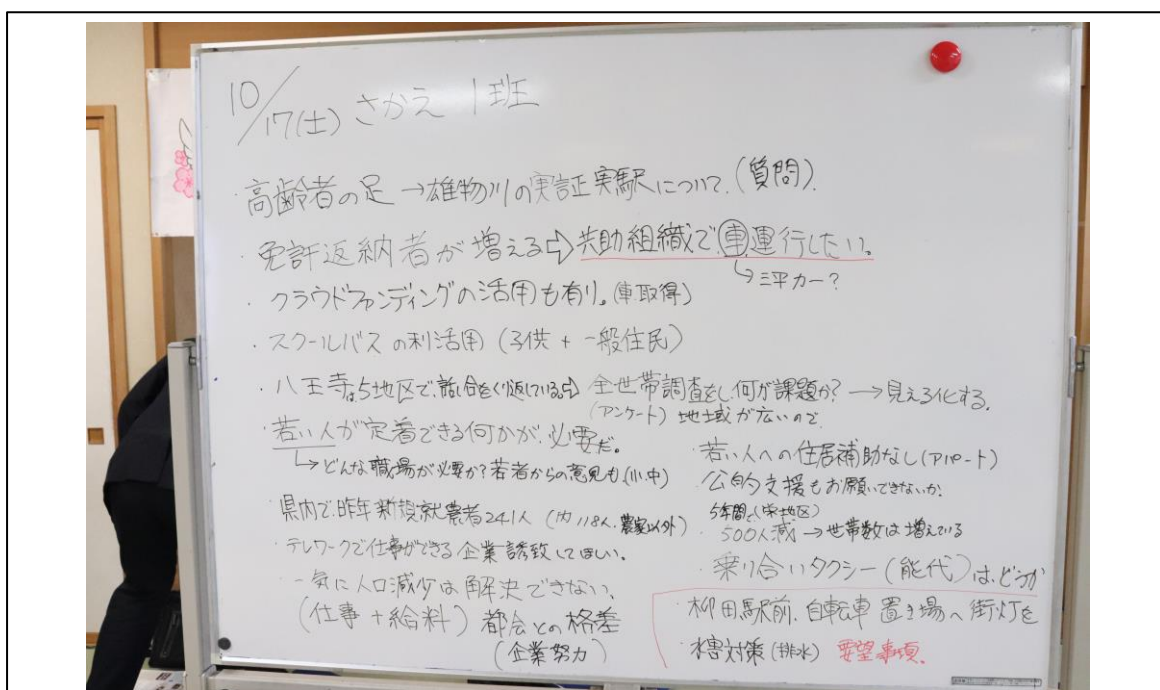 10/17(土) さかえ 1班
・高齢者の足 → 雄物川の実証実験について.(質問).
・免許返納者が増える⇨共助組織で車運行したい。
↳三平カー?
・クラウドファンディングの活用も有り。(車取得)
・スクールバスの利活用 (子供 + 一般住民)
・八王寺は5地区で、話し合をくり返している⇨ 全世帯調査をし、何が課題か? → 見える化する.
(アンケート) 地域が広いので
・若い人が定着できる何かが、必要だ。
↳どんな職場が必要か?若者からの意見も(小.中)
・県内で、昨年新規就農者241人 (内118人.農家以外)
・テレワークで仕事ができる企業誘致してほしい。
・一気に人口減少は解決できない、
(仕事 + 給料) 都会との格差
(企業努力)
・若い人への住居補助なし(アパート)
公的支援もお願いできないか.
5年間で(栄地区)
・500人減 → 世帯数は増えている
・乗り合いタクシー(能代)は、どうか
・柳田駅前.自転車置き場へ街灯を
・水害対策(排水) 要望事項.